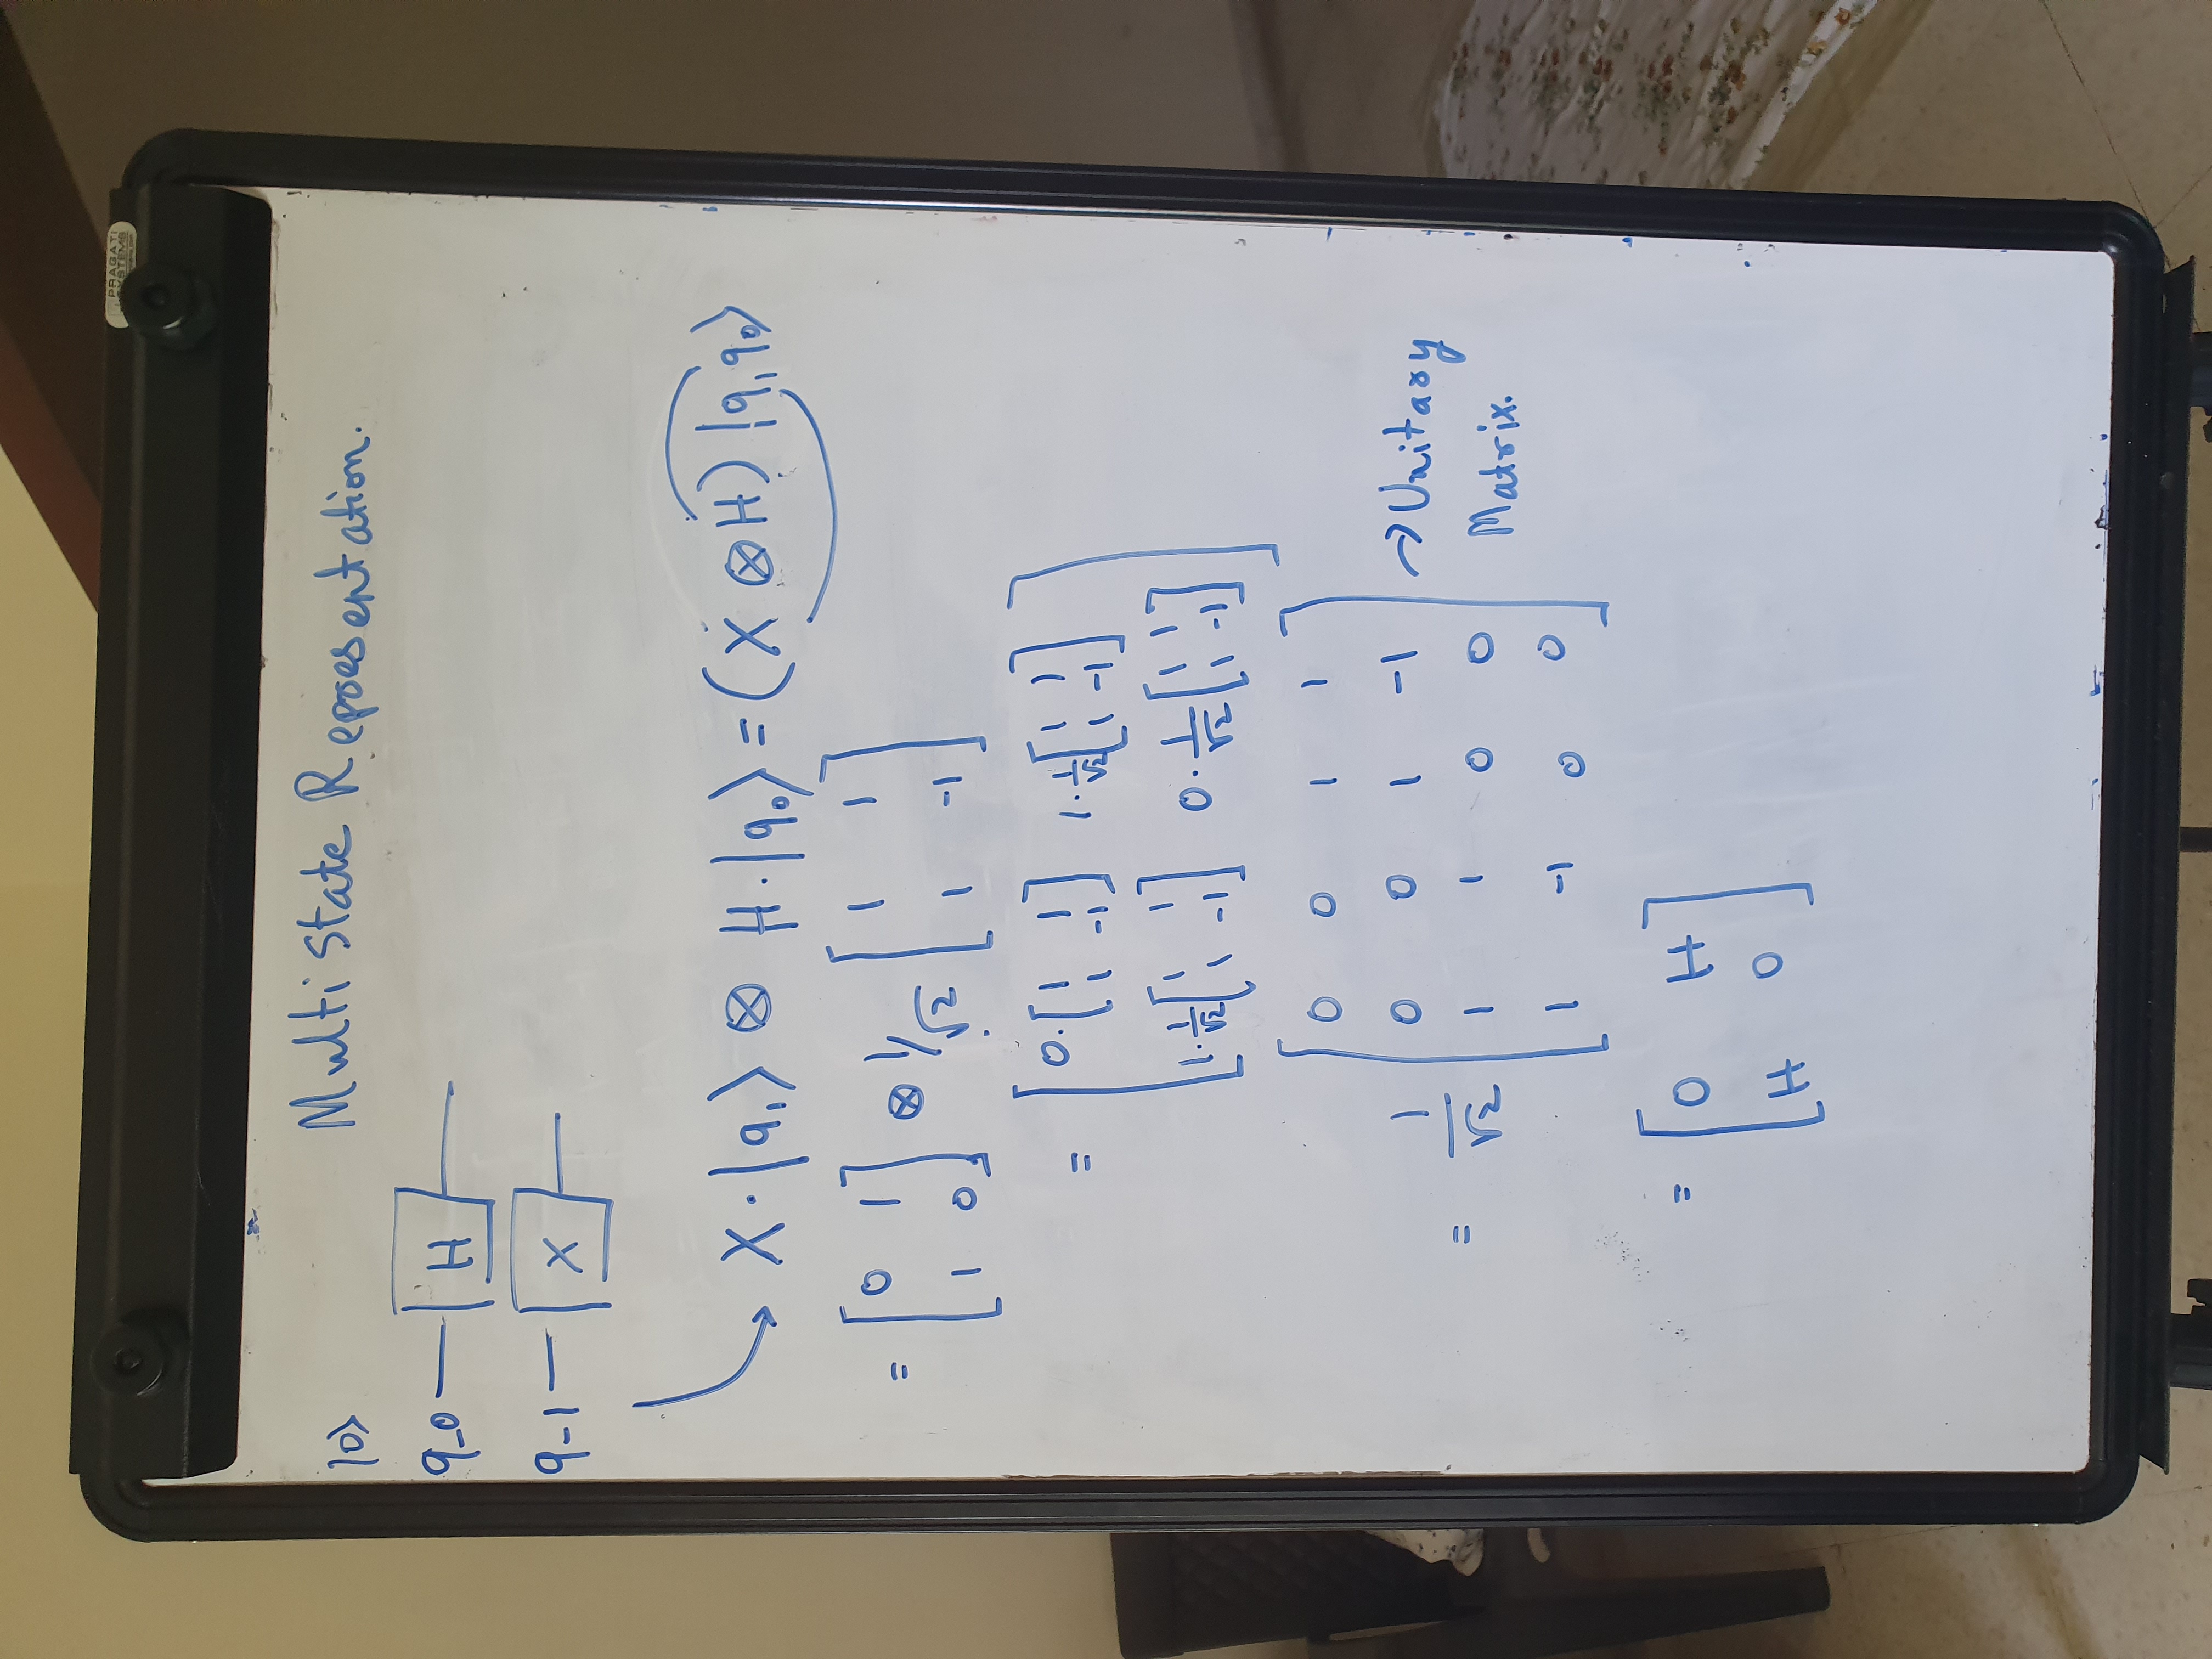 PRAGATI
SYSTEMS
Multi State Representation.
|0>
q_0 — H —
q_1 — X —
X·|q₁⟩ ⊗ H·|q₀⟩ = (X ⊗ H) |q₁q₀⟩
= [0 1
1 0] ⊗ 1/√2 [1 1
1 -1]
= [0·[1 1
1 -1] 1·1/√2[1 1
1 -1]
1·1/√2[1 1
1 -1] 0·1/√2[1 1
1 -1]]
= 1/√2 [0 0 1 1
0 0 1 -1
1 1 0 0
1 -1 0 0] → Unitary
Matrix.
= [0 H
H 0]